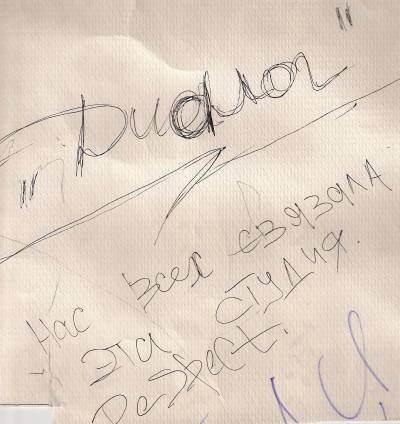 "Диалог"
Нас всех связала
эта студия.
Respect.